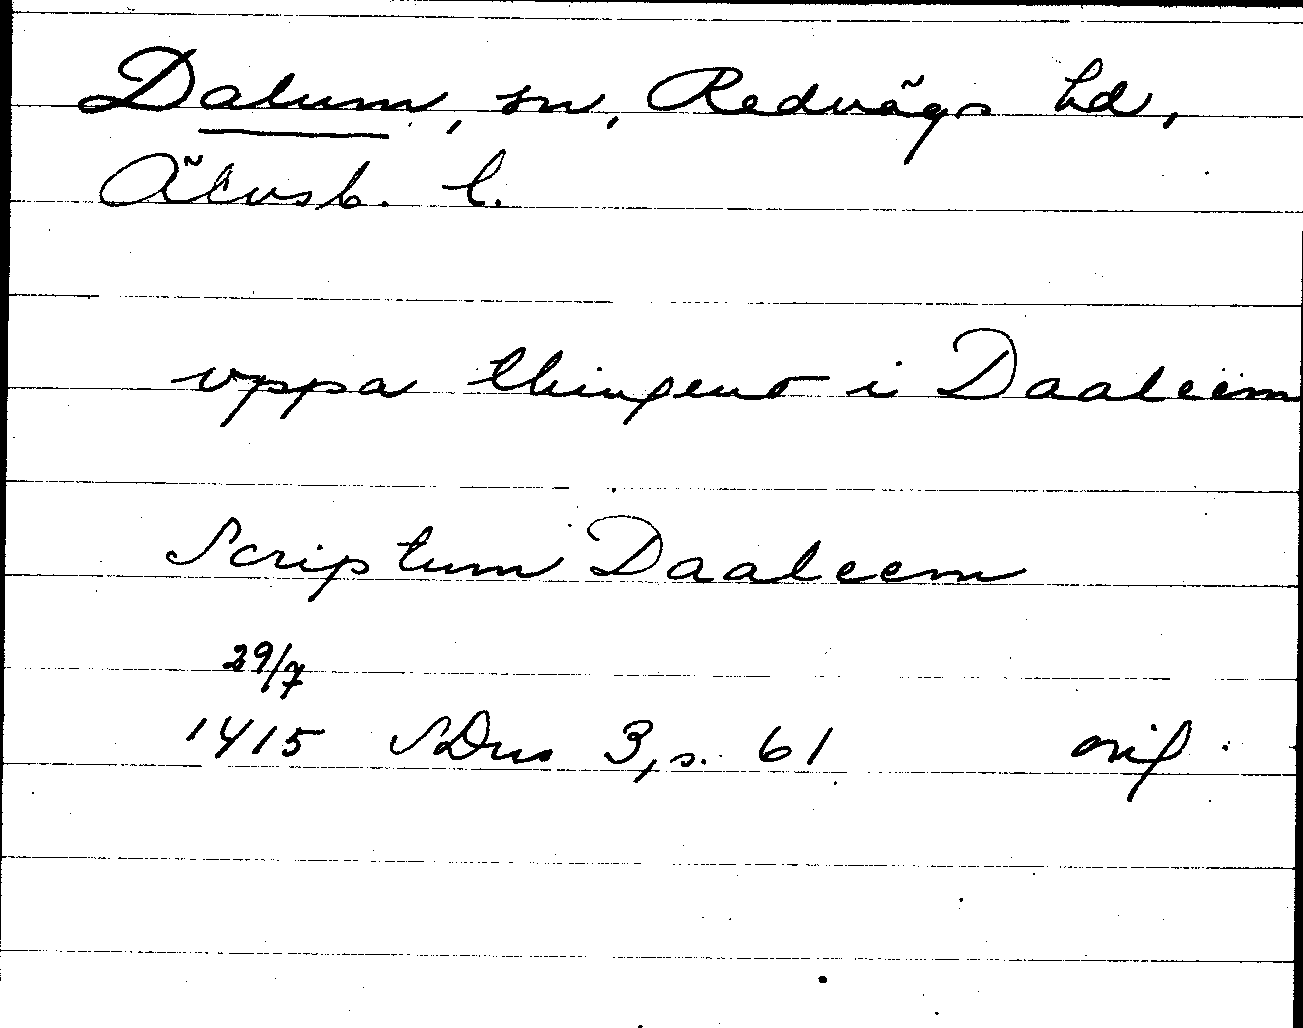 Dalum, sn, Redvägs hd,
Älvsb. l.
vppa thingeno i Daaleem
Scriptum Daaleem
29/7
1415 SDns 3, s. 61 orig.